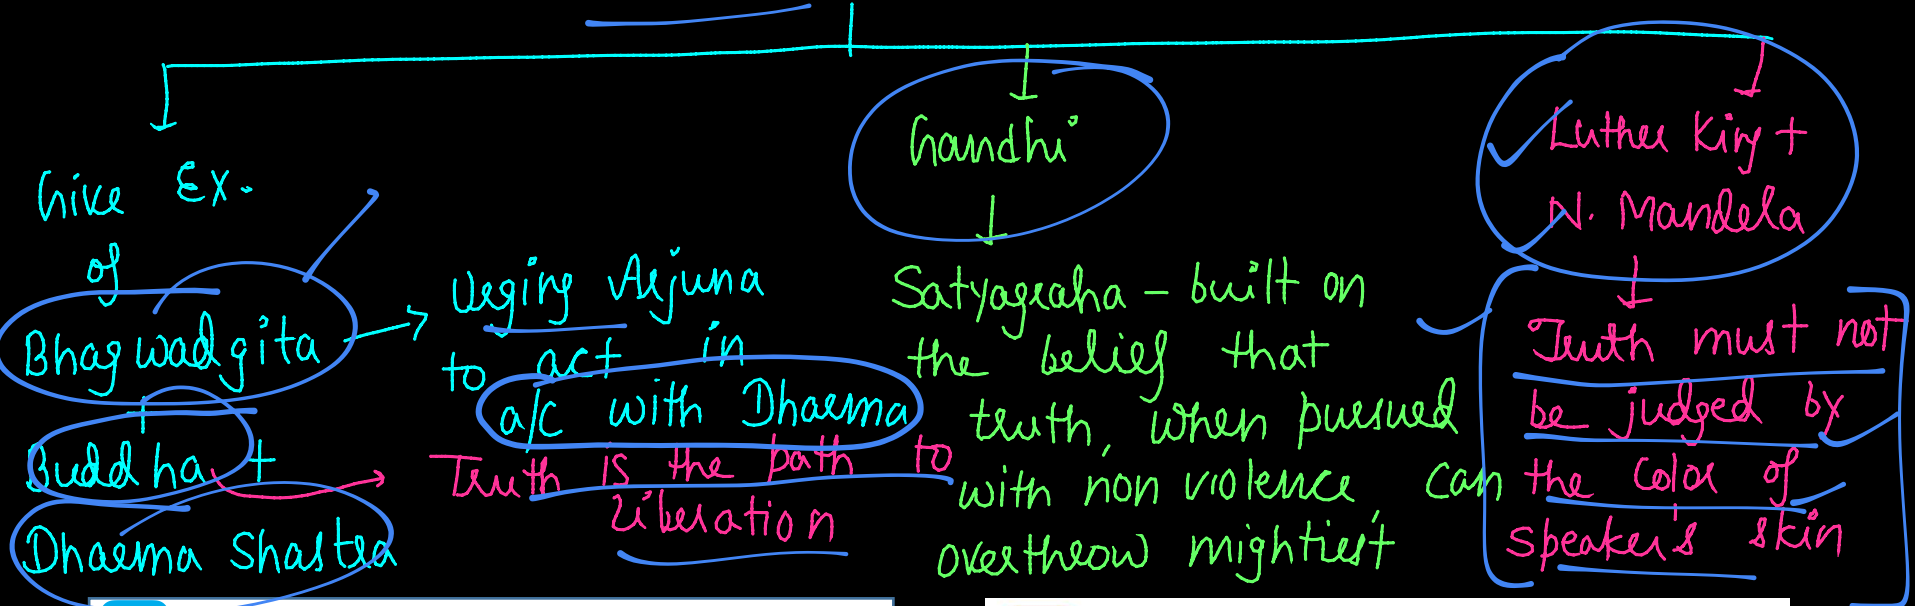 Give Ex.
of
Bhagwadgita
+
Buddha +
Dharma Shastra
Urging Arjuna
to act in
a/c with Dharma
Truth is the path to
Liberation
Gandhi
Satyagraha - built on
the belief that
truth, when pursued
with non violence can
overthrow mightiest
Luther King +
N. Mandela
Truth must not
be judged by
the color of
speaker's skin